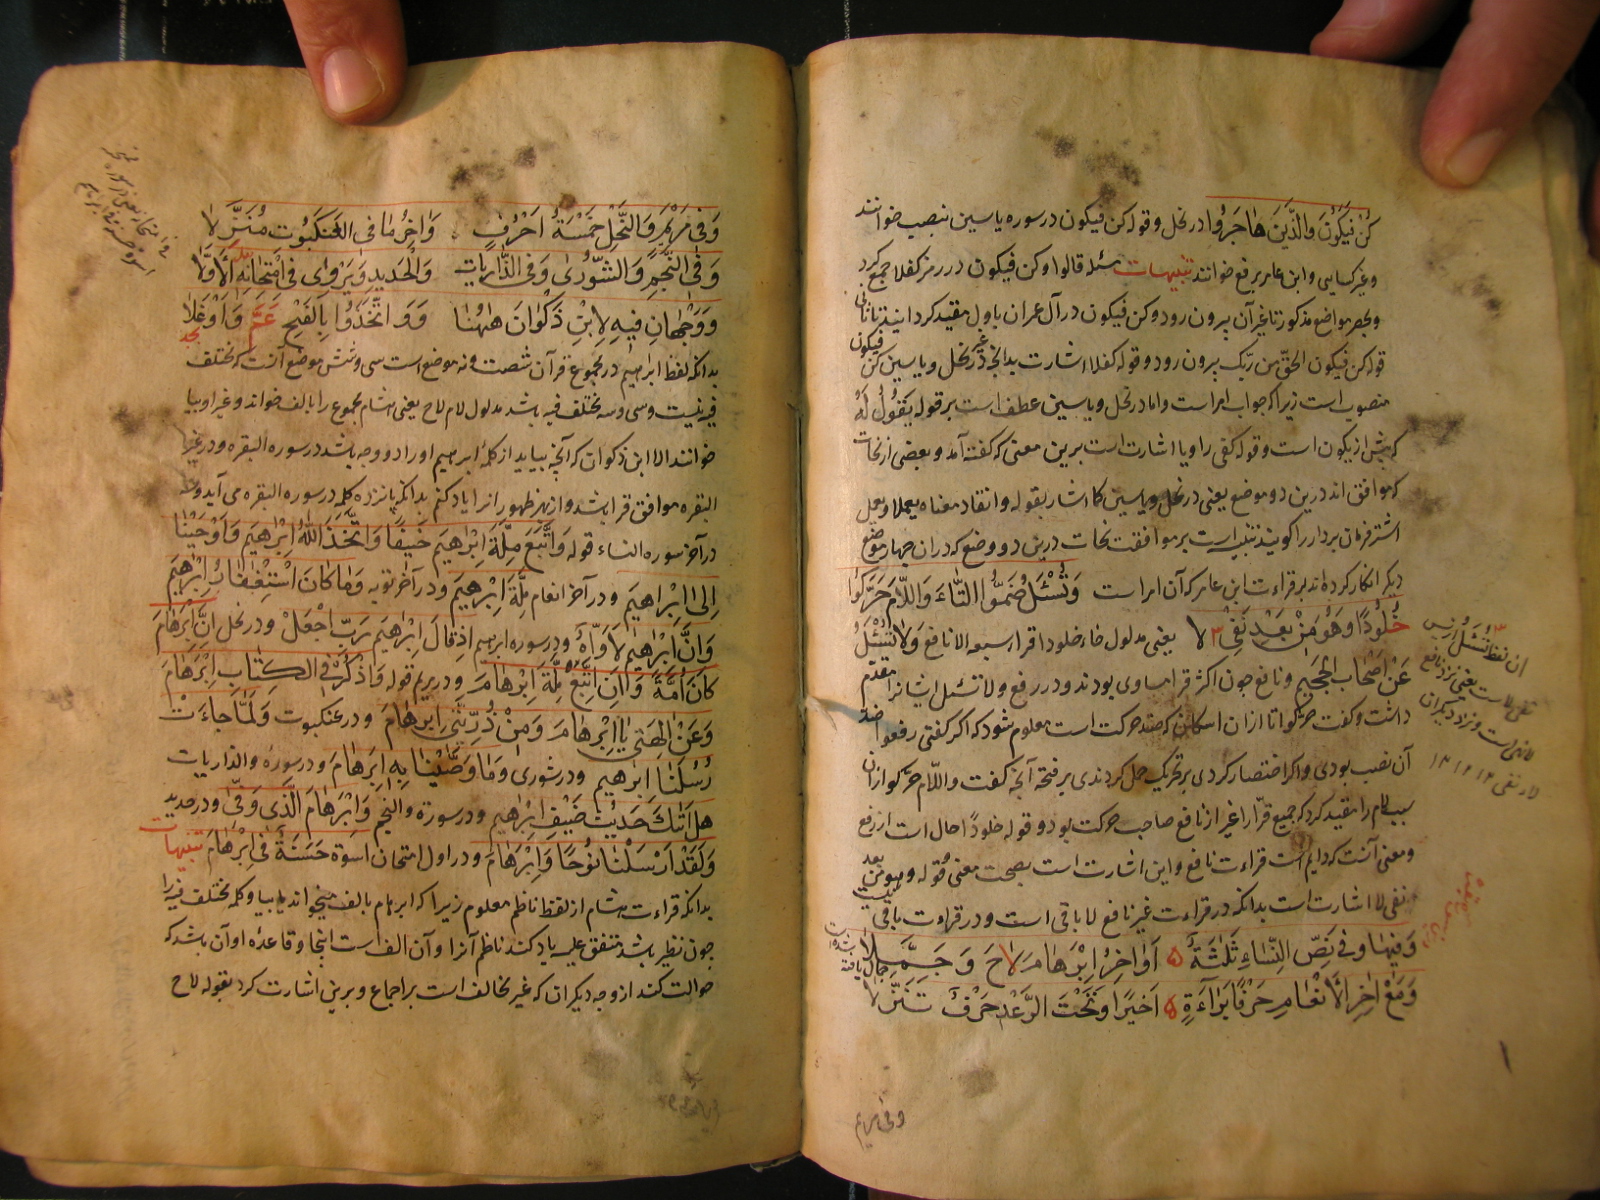 كن فيكون والذين هاجروا در نحل و قوله كن فيكون در سوره ياسين بنصب خوانند
و غير كسايى و ابن عامر برفع خوانند تنبيهات مسئله قالوا و كن فيكون در رمز كفلا جمع كرد
و بحصر مواضع مذكور تا غير آن بيرون رود و كن فيكون در آل عمران باول مقيد كردانيد تا ثانى
قوله كن فيكون الحق من ربك بيرون رود و قوله كفلا اشارت بدانچه در غير نحل و ياسين كن فيكون
منصوب است زيرا كه جواب امر است و اما در نحل و ياسين عطف است بر قوله يَقُولُ لَهُ
كه پيش از يكون است و قوله كفى راويا اشارت است برين معنى كه گفته آمد و بعضى از نحات
كه موافق اند درين دو موضع يعنى در نحل و ياسين كما اشار بقوله و انقاد معناه يعملا و يعمل
اشتر فرمان بردار را كويند تنبيه است بر موافقت نحات درين دو وضع كه در ان چهار موضع
ديكر انكار كرده اند بر قراءت ابن عامر كه آن امر است وَتُسْئَلُ ضَمُّوا التَّاءَ وَاللَّامَ حَرَّكُوا
خُلُودًا وَهُوَ مِنْ بَعْدِ نَفْىِ لا يعنى مدلول خاء خلودا قراء سبعه الا نافع وَلَا تُسْئَلُ
عَنْ اَصْحَابِ الْجَحِيمِ و نافع چون اكثر قرا مساوى بودند و در رفع ولا تسئل ايشانرا مقدم
داشت و كفت حركوا تا از ان اسكان كه ضد حركت است معلوم شود كه اكر كفتى رفعوا ضد
آن نصب بودى و اكر اختصار كردى بر تحريك حمل كردندى بر فتحه آنچه كفت واللام حركوا از ان
سبب لام را مقيد كرد كه جميع قرّا را غير از نافع صاحب حركت بود و قوله خلودًا حال است از رفع
و معنى آنست كه دايم است قراءت نافع و اين اشارت است بصحت معنى قوله و هو من بعد
نفى لا اشارت است بدانكه در قراءت غير نافع لا باقى است و در قراءت باقى
وَفِيهَا وَفِى نَصِّ النِّسَاءِ ثَلٰثَةٌ اَوَاخِرُ اِبْرَهَامَ لَاحَ وَجَمَّلَا
وَمَعْ اٰخِرِ الْاَنْعَامِ حَرْفَا بَرَاءَةٍ اَخِيرًا وَتَحْتَ الرَّعْدِ حَرْفٌ تَنَزَّلَا
ان لفظ تسئل از پس
نفى لا است يعنى نزد نافع
لا نهى است و نزد ديكران
لا نفى
وفى مريم
وَفِى مَرْيَمَ وَالنَّحْلِ خَمْسَةُ اَحْرُفٍ وَاٰخِرُ مَا فِى الْعَنْكَبُوتِ مُنَزَّلَا
وَفِى النَّجْمِ وَالشُّورٰى وَفِى الذَّارِيَاتِ وَالْحَدِيدِ وَيَرْوِى فِى امْتِحَانِهِ الْاَوَّلَا
وَوَجْهَانِ فِيهِ لِابْنِ ذَكْوَانَ هٰهُنَا وَوَاتَّخِذُوا بِالْفَتْحِ عَمَّ وَاَوْغَلَا
بدانكه لفظ ابراهيم در مجموع قرآن شصت و نه موضع است سى و شش موضع آنست كه مختلف
فيه نيست و سى و سه مختلف فيه باشد مدلول لام لاح يعنى هشام مجموع را بالف خواند و غير او بيا
خوانند الا ابن ذكوان كه آنچه بيايد از كلمه ابرهيم او را دو وجه باشد در سوره البقره و در غير
البقره موافق قرا باشد و از بهر ظهور انرا ياد كنم بدانكه پانزده كلمه در سوره البقره مى آيد و سه
در آخر سوره النساء قوله وَاتَّبَعَ مِلَّةَ اِبْرٰهِيمَ حَنِيفًا وَاتَّخَذَ اللّٰهُ اِبْرٰهِيمَ وَاَوْحَيْنَا
اِلٰى اِبْرٰهِيمَ و در آخر انعام مِلَّةَ اِبْرٰهِيمَ و در آخر توبه وَمَا كَانَ اسْتِغْفَارُ اِبْرٰهِيمَ
وَاِنَّ اِبْرٰهِيمَ لَاَوَّاهٌ و در سوره ابرهيم اِذْ قَالَ اِبْرٰهِيمُ رَبِّ اجْعَلْ و در نحل اِنَّ اِبْرٰهَامَ
كَانَ اُمَّةً وَاَنِ اتَّبِعْ مِلَّةَ اِبْرٰهَامَ و در مريم قوله وَاذْكُرْ فِى الْكِتَابِ اِبْرٰهَامَ
وَعَنْ اٰلِهَتِى يَا اِبْرٰهَامَ وَمِنْ ذُرِّيَّةِ اِبْرٰهَامَ و در عنكبوت وَلَمَّا جَاءَتْ
رُسُلُنَا اِبْرٰهِيمَ و در شورى وَمَا وَصَّيْنَا بِهِ اِبْرٰهَامَ و در سوره والذاريات
هَلْ اَتٰيكَ حَدِيثُ ضَيْفِ اِبْرٰهِيمَ و در سورة والنجم وَاِبْرٰهَامَ الَّذِى وَفّٰى و در حديد
وَلَقَدْ اَرْسَلْنَا نُوحًا وَاِبْرٰهَامَ و در اول امتحان اُسْوَةٌ حَسَنَةٌ فِى اِبْرٰهَامَ تنبيهات
بدانكه قراءت هشام از لفظ ناظم معلوم زيرا كه ابرهام بالف ميخواند يا بيا و كلمه مختلف فيه را
چون نظير باشد متفق عليه ياد كند ناظم آنرا و آن الف است اينجا و قاعده او آن باشد كه
حوالت كند از وجه ديكران كه غير مخالف است بر اجماع و برين اشارت كرد بقوله لاح